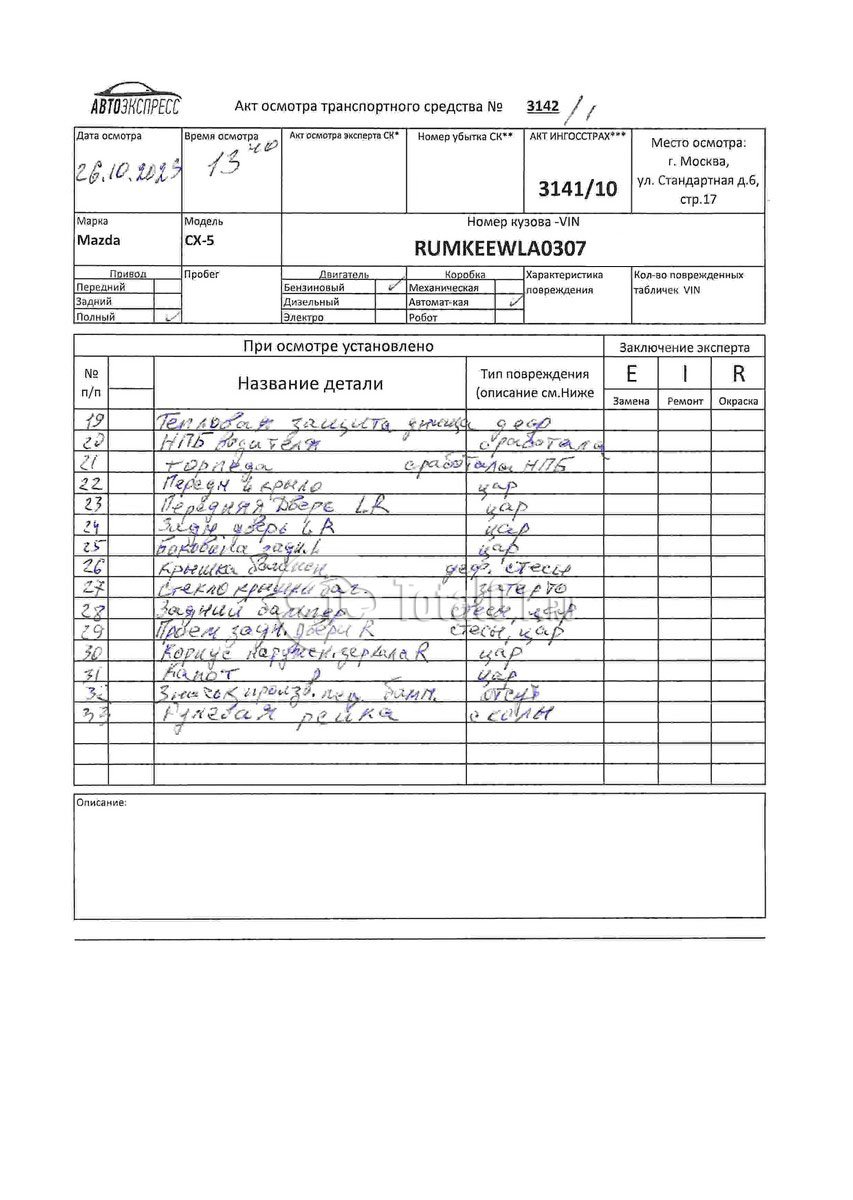 АВТОЭКСПРЕСС
Акт осмотра транспортного средства № 3142/1
Дата осмотра
26.10.2023
Время осмотра
13 40
Акт осмотра эксперта СК*
Номер убытка СК**
АКТ ИНГОССТРАХ***
3141/10
Место осмотра:
г. Москва,
ул. Стандартная д.6,
стр.17
Марка
Mazda
Модель
CX-5
Номер кузова -VIN
RUMKEEWLA0307
Привод
Передний
Задний
Полный ✓
Пробег
Двигатель
Бензиновый ✓
Дизельный
Электро
Коробка
Механическая
Автомат-кая ✓
Робот
Характеристика
повреждения
Кол-во поврежденных
табличек VIN
При осмотре установлено
Заключение эксперта
№
п/п
Название детали
Тип повреждения
(описание см.Ниже
E I R
Замена Ремонт Окраска
19 Тепловая защита днища деф
20 НПБ водителя сработала
21 торпеда сработала НПБ
22 Передн крыло цар
23 Передняя Дверь LR цар
24 Задн дверь LR цар
25 Боковина задн. L цар
26 Крышка деф. стесы
27 Стекло крышки баг. затерто
28 Задний бампер стесы, цар
29 Проем задн. двери R стесы, цар
30 Корпус наружн. зеркала R цар
31 Капот цар
32 Значок произв. пер бамп. отсут
33 Рулевая рейка сколы
Total01.ru
Описание: